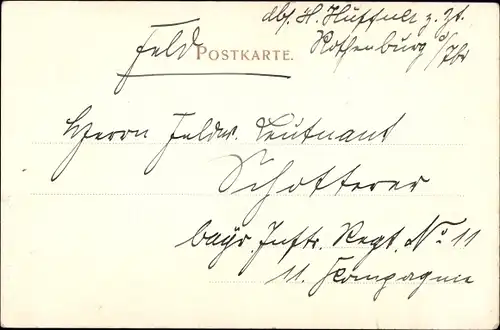 Abs. H. Huffnel z. Zt.
Rothenburg o/Tbr
Feld POSTKARTE.
Herrn Feldw. Leutnant
Schotterer
bayr. Inftr. Regt. No 11
11. Kompagnie